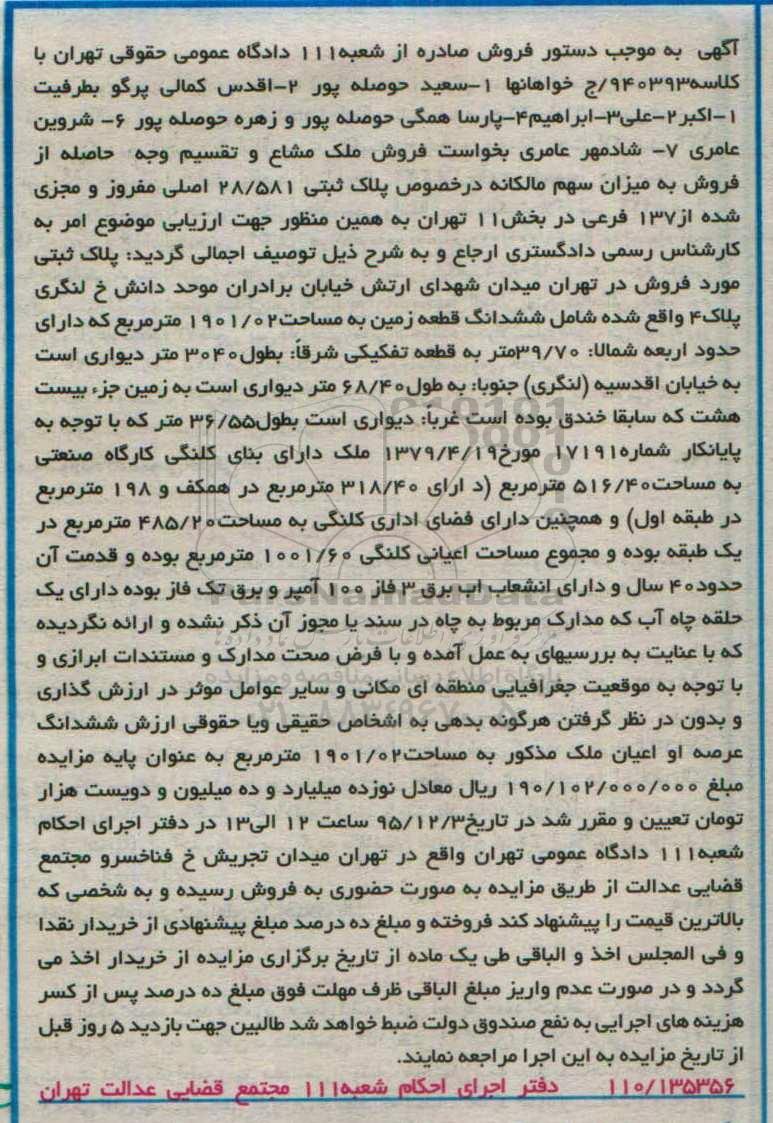 آگهی به موجب دستور فروش صادره از شعبه۱۱۱ دادگاه عمومی حقوقی تهران با
کلاسه۹۴۰۳۹۳/ج خواهانها ۱-سعید حوصله پور ۲-اقدس کمالی پرگو بطرفیت
۱-اکبر۲-علی۳-ابراهیم۴-پارسا همگی حوصله پور و زهره حوصله پور ۶- شروین
عامری ۷- شادمهر عامری بخواست فروش ملک مشاع و تقسیم وجه حاصله از
فروش به میزان سهم مالکانه درخصوص پلاک ثبتی ۲۸/۵۸۱ اصلی مفروز و مجزی
شده از۱۳۷ فرعی در بخش۱۱ تهران به همین منظور جهت ارزیابی موضوع امر به
کارشناس رسمی دادگستری ارجاع و به شرح ذیل توصیف اجمالی گردید: پلاک ثبتی
مورد فروش در تهران میدان شهدای ارتش خیابان برادران موحد دانش خ لنگری
پلاک۴ واقع شده شامل ششدانگ قطعه زمین به مساحت۱۹۰۱/۰۲ مترمربع که دارای
حدود اربعه شمالا: ۳۹/۷۰متر به قطعه تفکیکی شرقاً: بطول۳۰۴۰ متر دیواری است
به خیابان اقدسیه (لنگری) جنوبا: به طول۶۸/۴۰ متر دیواری است به زمین جزء بیست
هشت که سابقا خندق بوده است غرباً: دیواری است بطول۳۶/۵۵ متر که با توجه به
پایانکار شماره۱۷۱۹۱ مورخ۱۳۷۹/۴/۱۹ ملک دارای بنای کلنگی کارگاه صنعتی
به مساحت۵۱۶/۴۰ مترمربع (د ارای ۳۱۸/۴۰ مترمربع در همکف و ۱۹۸ مترمربع
در طبقه اول) و همچنین دارای فضای اداری کلنگی به مساحت۴۸۵/۲۰ مترمربع در
یک طبقه بوده و مجموع مساحت اعیانی کلنگی ۱۰۰۱/۶۰ مترمربع بوده و قدمت آن
حدود۴۰ سال و دارای انشعاب اب برق ۳ فاز ۱۰۰ آمپر و برق تک فاز بوده دارای یک
حلقه چاه آب که مدارک مربوط به چاه در سند یا مجوز آن ذکر نشده و ارائه نگردیده
که با عنایت به بررسیهای به عمل آمده و با فرض صحت مدارک و مستندات ابرازی و
با توجه به موقعیت جغرافیایی منطقه ای مکانی و سایر عوامل موثر در ارزش گذاری
و بدون در نظر گرفتن هرگونه بدهی به اشخاص حقیقی ویا حقوقی ارزش ششدانگ
عرصه او اعیان ملک مذکور به مساحت۱۹۰۱/۰۲ مترمربع به عنوان پایه مزایده
مبلغ ۱۹۰/۱۰۲/۰۰۰/۰۰۰ ریال معادل نوزده میلیارد و ده میلیون و دویست هزار
تومان تعیین و مقرر شد در تاریخ۹۵/۱۲/۳ ساعت ۱۲ الی۱۳ در دفتر اجرای احکام
شعبه۱۱۱ دادگاه عمومی تهران واقع در تهران میدان تجریش خ فناخسرو مجتمع
قضایی عدالت از طریق مزایده به صورت حضوری به فروش رسیده و به شخصی که
بالاترین قیمت را پیشنهاد کند فروخته و مبلغ ده درصد مبلغ پیشنهادی از خریدار نقدا
و فی المجلس اخذ و الباقی طی یک ماده از تاریخ برگزاری مزایده از خریدار اخذ می
گردد و در صورت عدم واریز مبلغ الباقی ظرف مهلت فوق مبلغ ده درصد پس از کسر
هزینه های اجرایی به نفع صندوق دولت ضبط خواهد شد طالبین جهت بازدید ۵ روز قبل
از تاریخ مزایده به این اجرا مراجعه نمایند.
۱۱۰/۱۳۵۳۵۶ دفتر اجرای احکام شعبه۱۱۱ مجتمع قضایی عدالت تهران